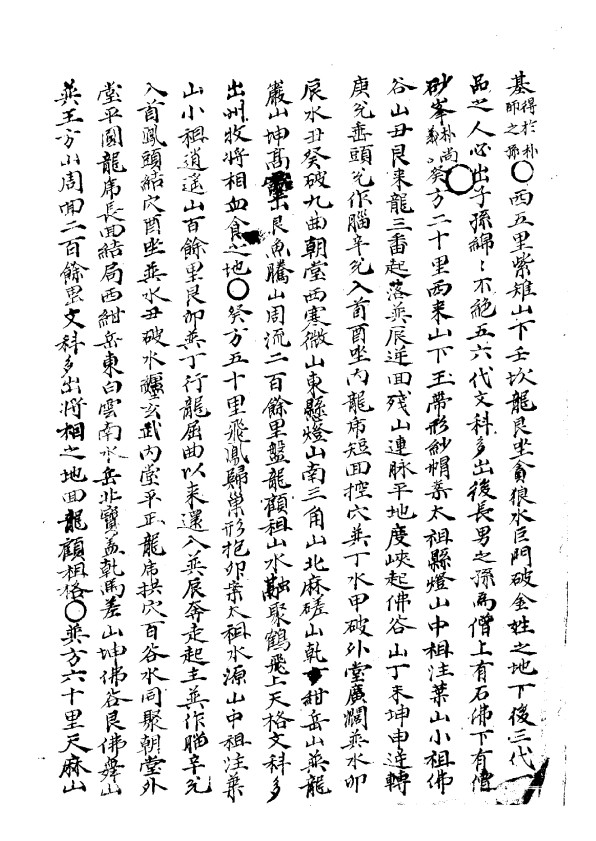 基得於朴師之孫〇西五里紫雉山下壬坎龍艮坐貪狼水巨門破金姓之地下後三代一
品之人必出子孫綿〻不絕五六代文科多出後長男之孫爲僧上有石佛下有僧
砂峯朴尚義〇癸方二十里西來山下玉帶形紗帽案太祖縣燈山中祖注葉山小祖佛
谷山丑艮來龍三番起落巽辰逆面殘山連脉平地度峽起佛谷山丁未坤申逆轉
庚兌垂頭兌作腦辛兌入首酉坐內龍虎短面控穴巽丁水甲破外堂廣濶巽水卯
辰水丑癸破九曲朝堂西寒微山東懸燈山南三角山北麻磋山乾紺岳山巽龍
巖山坤高山艮魚騰山周流二百餘里盤龍顧祖山水融聚鶴飛上天格文科多
出州牧將相血食之地〇癸方五十里飛鳳歸巢形抱卵案太祖水源山中祖注葉
山小祖逍遥山百餘里艮卯巽丁行龍屈曲以來還入巽辰奔走起主巽作腦辛兌
入首鳳頭結穴酉坐巽水丑破水纏玄武內堂平正龍虎拱穴百谷水同聚朝堂外
堂平圓龍虎長面結局西紺岳東白雲南水岳北寶盖乾馬差山坤佛谷艮佛舞山
巽王方山周回二百餘里文科多出將相之地回龍顧祖格〇巽方六十里天麻山